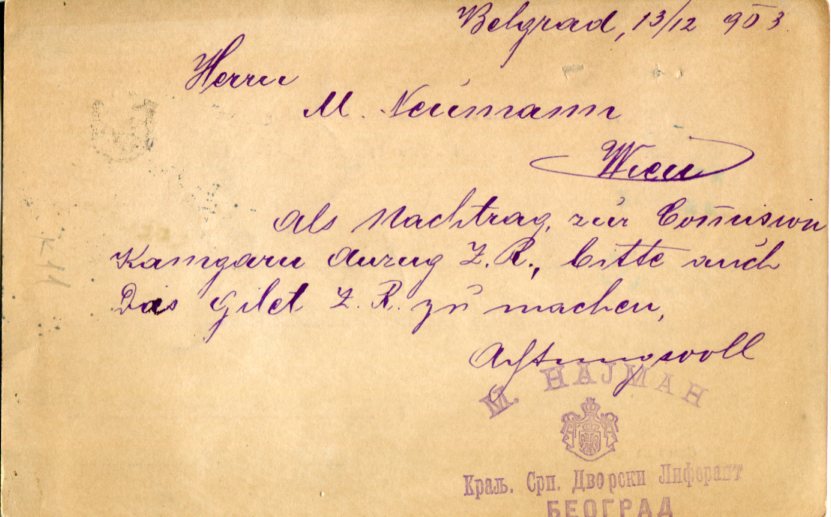 Belgrad, 13/12 903
Herrn
M. Neumann
Wien
Als Nachtrag zur Com̄ision
Kamgarn Anzug Z. R., bitte auch
Das Gilet Z. R. zu machen,
Achtungsvoll
М. НАЈМАН
Краљ. Срп. Дворски Лиферант
БЕОГРАД